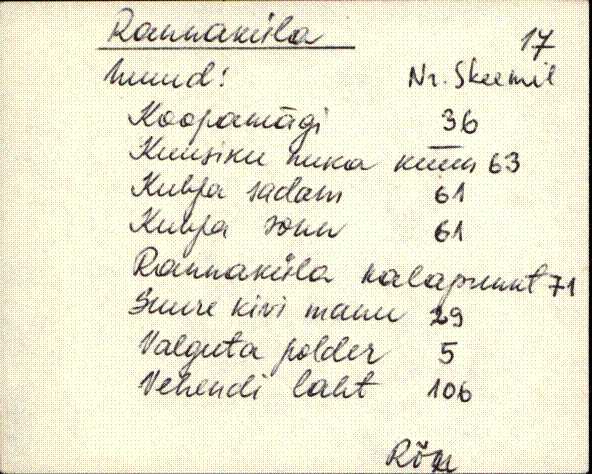 Rannaküla
17
muud:
Nr. Skeemil
Koopamägi 36
Kuusiku nuka küün 63
Kubja sadam 61
Kubja soon 61
Rannaküla kalapunkt 71
Suure kivi mann 29
Valguta polder 5
Vehendi laht 106
Rõn